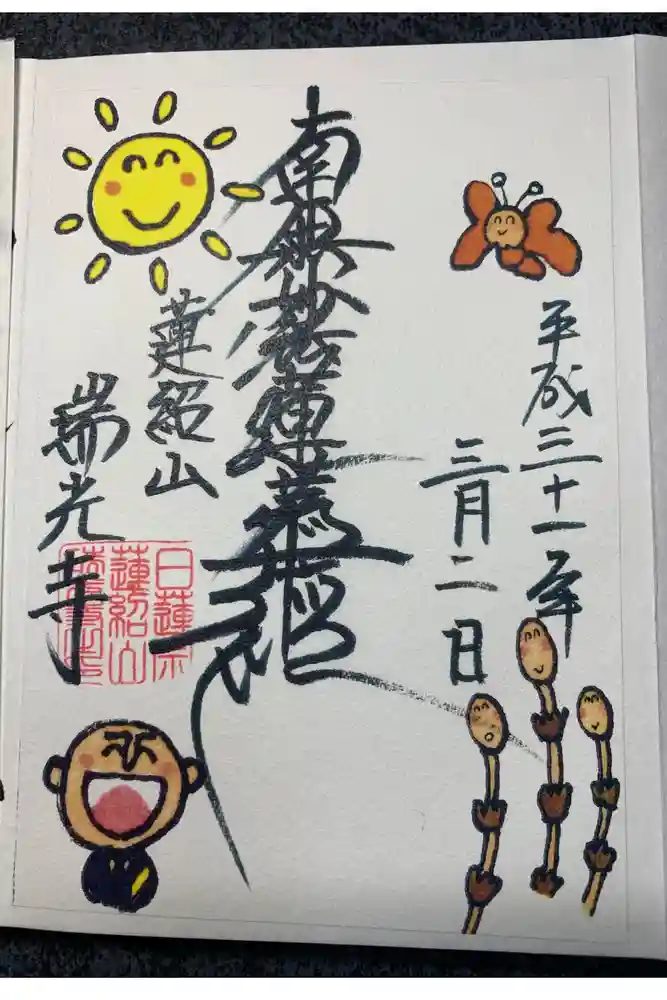 平成三十一年
三月二日
南無妙法蓮華経
蓮紹山
瑞光寺
日蓮宗
蓮紹山